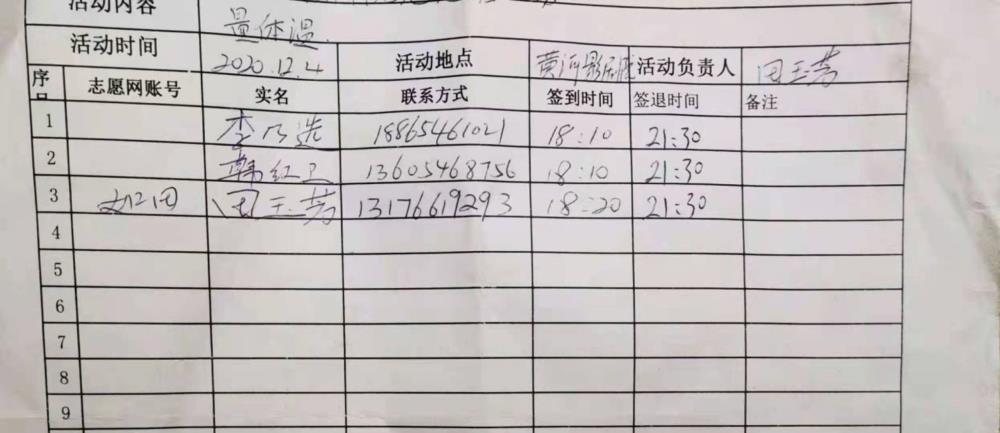 活动内容
量体温.
活动时间 2020.12.4 活动地点 黄河影剧院 活动负责人 田玉芳
序号 志愿网账号 实名 联系方式 签到时间 签退时间 备注
1 李乃选 18865461021 18:10 21:30
2 韩红卫 13605468756 18:10 21:30
3 田玉芳 13176619293 18:20 21:30
4
5
6
7
8
9